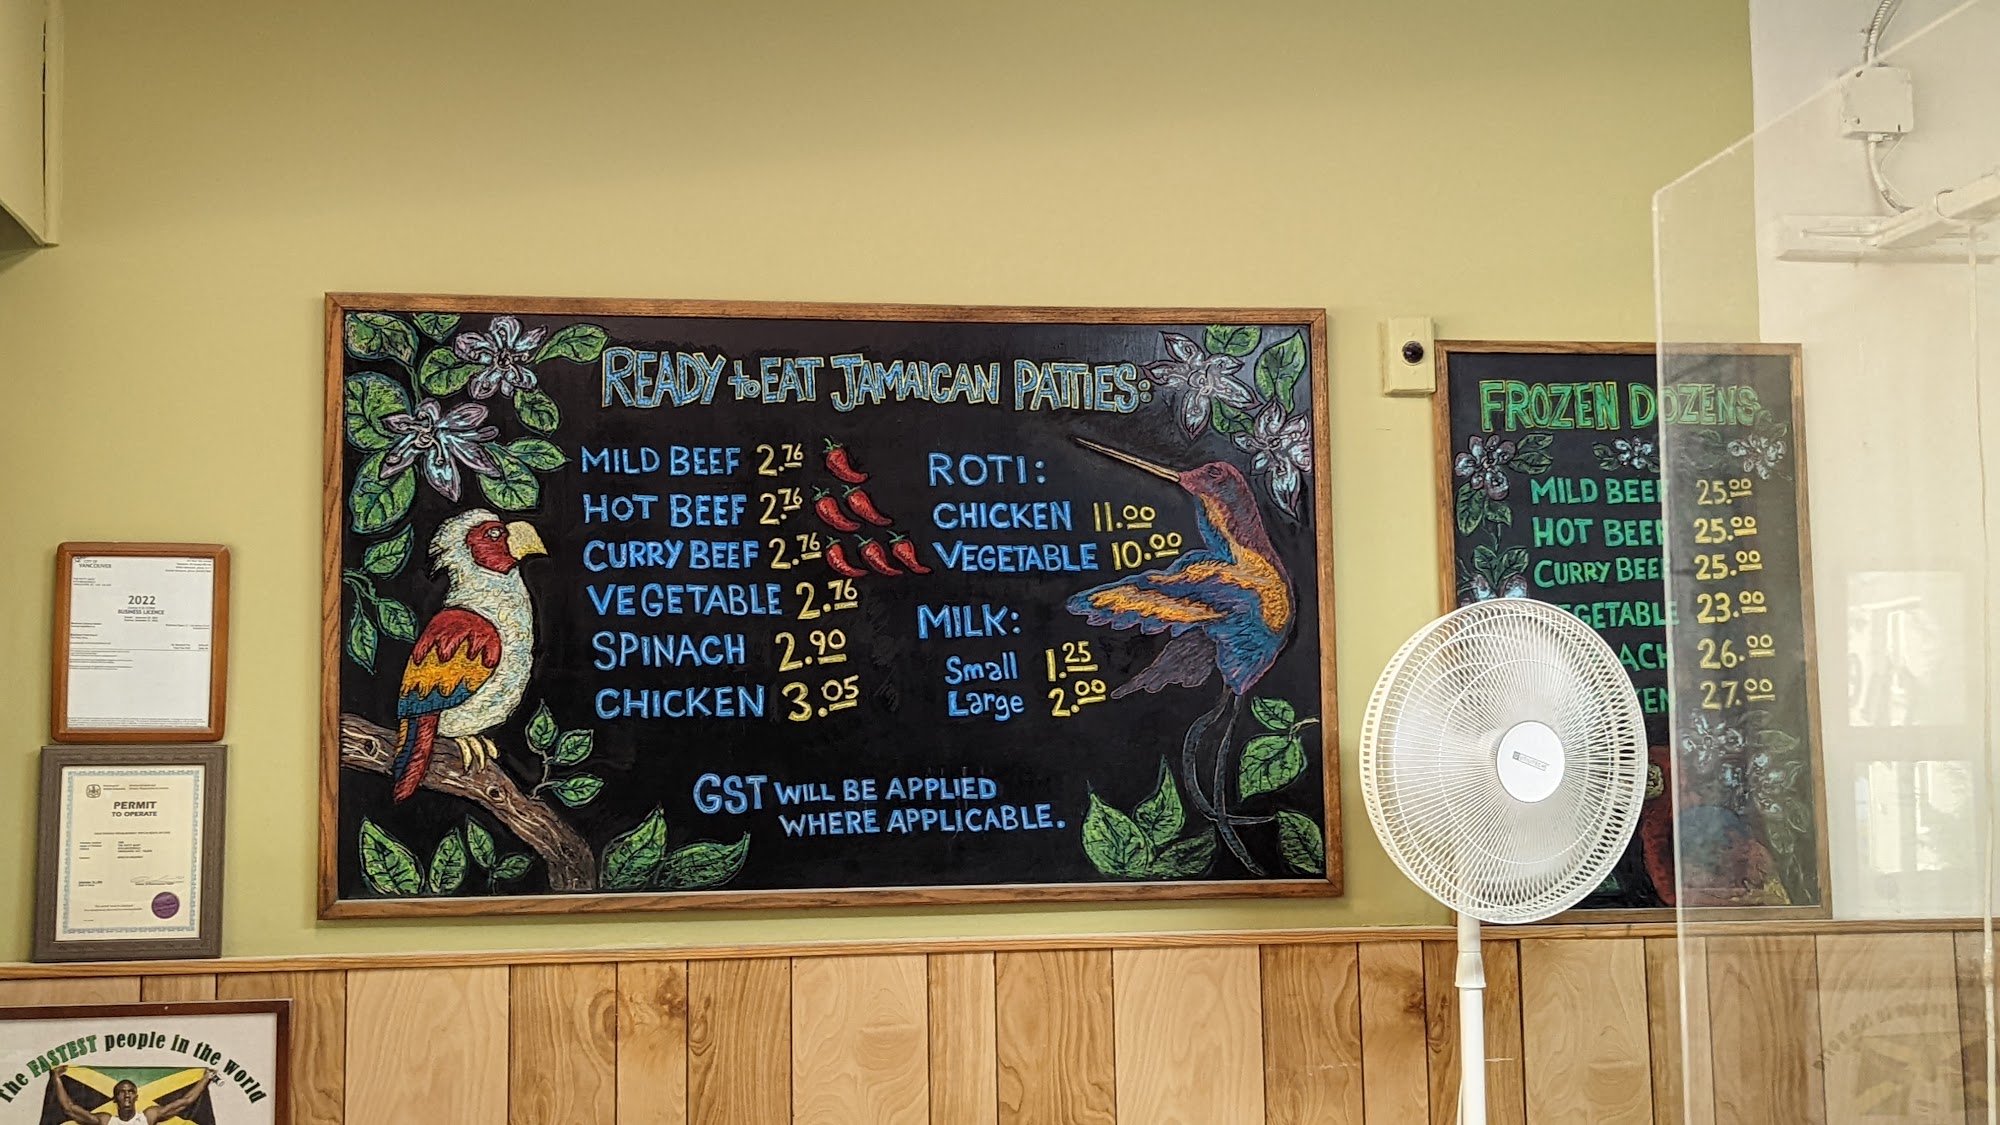 READY to EAT JAMAICAN PATTIES:
MILD BEEF 2.76
HOT BEEF 2.76
CURRY BEEF 2.76
VEGETABLE 2.76
SPINACH 2.90
CHICKEN 3.05
ROTI:
CHICKEN 11.00
VEGETABLE 10.00
MILK:
Small 1.25
Large 2.00
GST WILL BE APPLIED
WHERE APPLICABLE.
FROZEN DOZENS
MILD BEEF 25.00
HOT BEEF 25.00
CURRY BEEF 25.00
VEGETABLE 23.00
ACH 26.00
EN 27.00
CITY OF
VANCOUVER
2022
BUSINESS LICENCE
PERMIT
TO OPERATE
The FASTEST people in the world